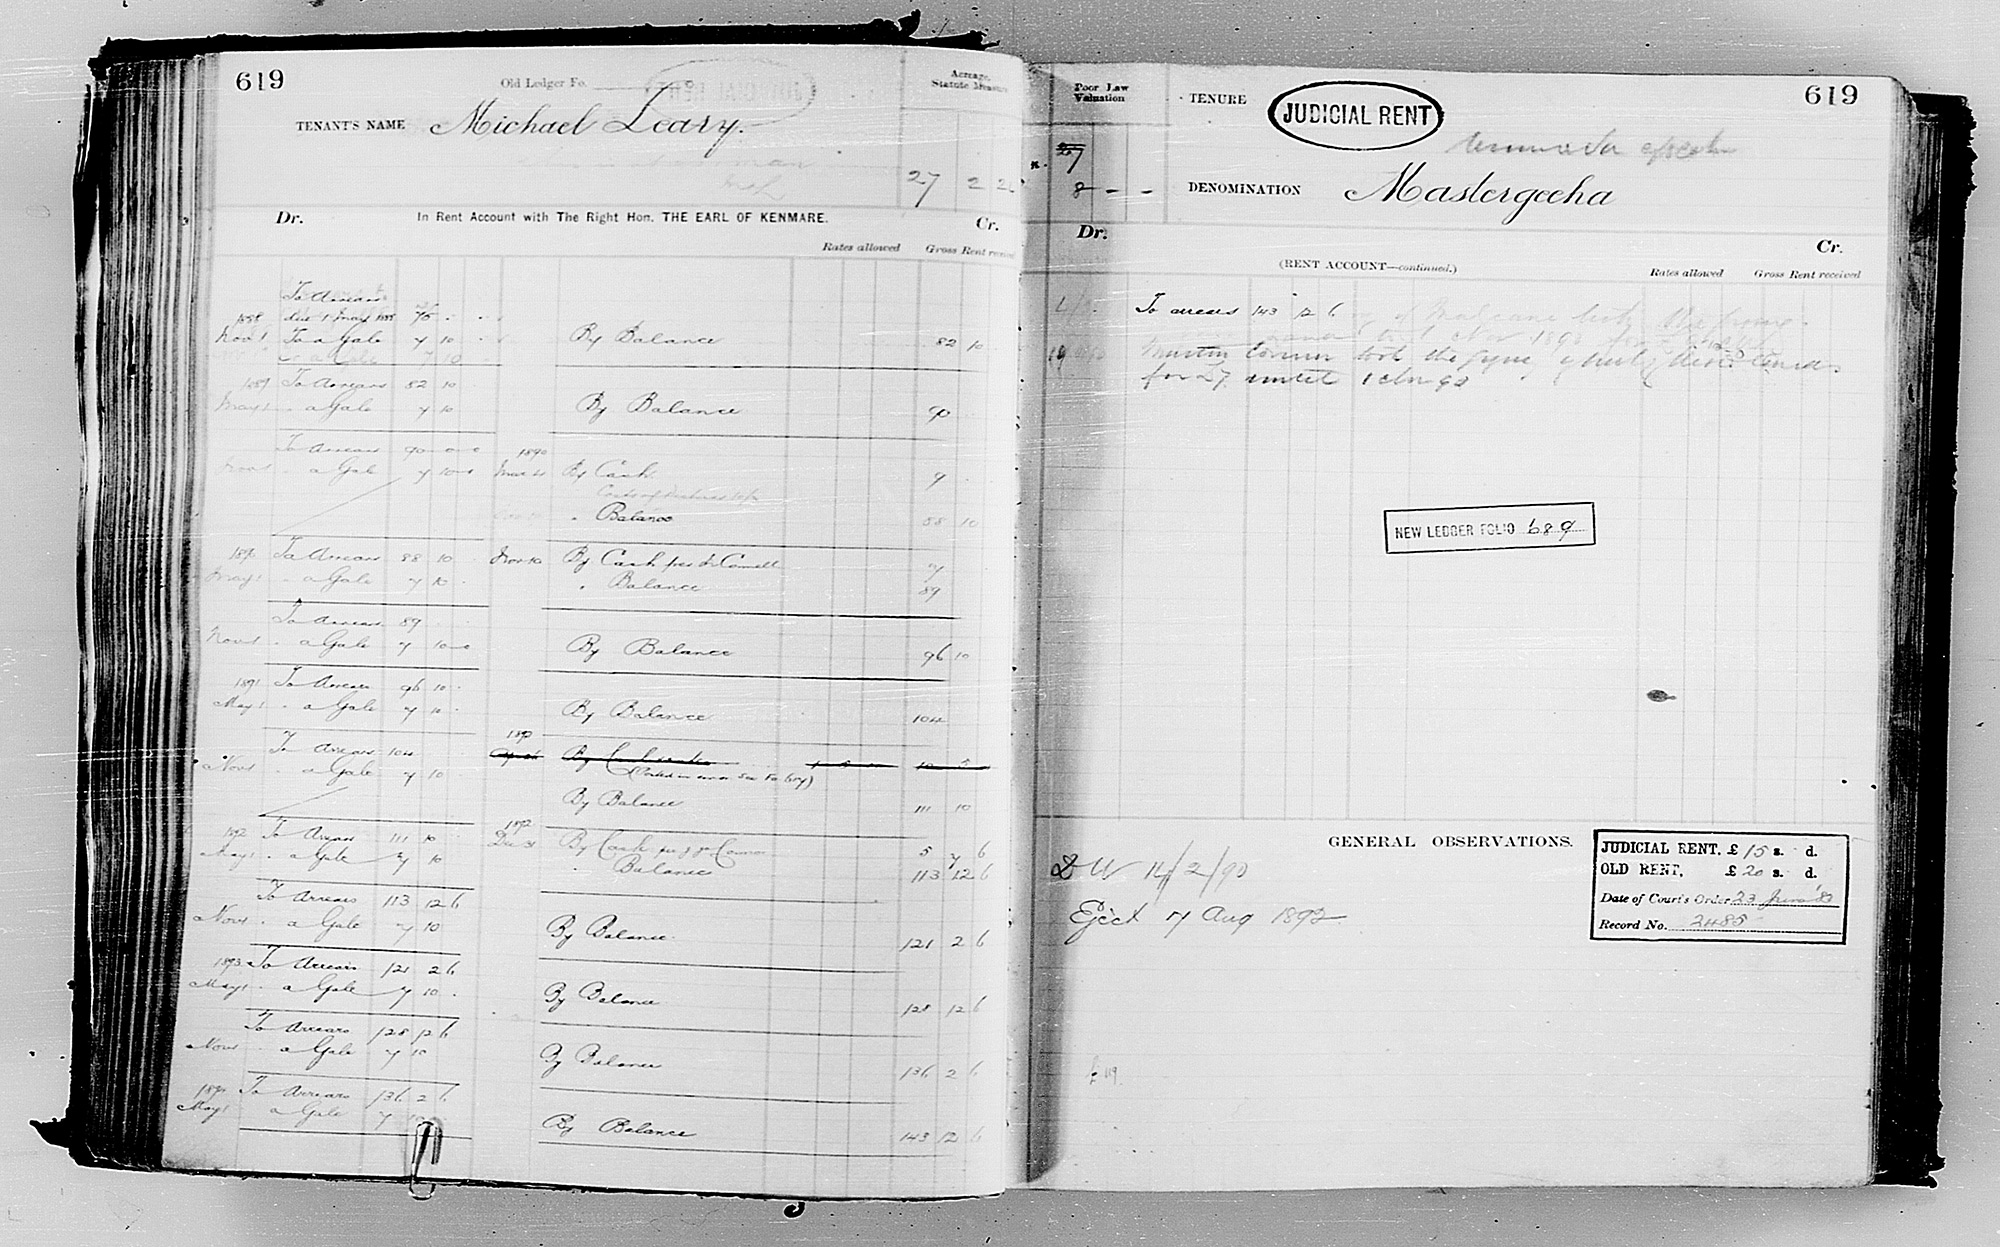 619
Old Ledger Fo.
Acreage, Statute Measure
TENANT'S NAME Michael Leary.
27 2
Dr. In Rent Account with The Right Hon. THE EARL OF KENMARE. Cr.
Rates allowed Gross Rent received
To Arrears
due 1 May 1888 75 . .
1888
Nov 1 To a Gale 7 10 . By Balance 82 10
1889 To Arrears 82 10
May 1 . a Gale 7 10 By Balance 90
To Arrears 90 0 0 1890
Nov 1 . a Gale 7 10 0 By Cash 9
. Balance 88 10
1890 To Arrears 88 10 Nov 10 By Cash per 7
May 1 . a Gale 7 10 . . Balance 89
To Arrears 89
Nov 1 . a Gale 7 10 0 By Balance 96 10
1891 To Arrears 96 10
May 1 . a Gale 7 10 By Balance 104
To Arrears 104 1892
Nov 1 . a Gale 7 10
(Posted in error See Fo
By Balance 111 10
1892 To Arrears 111 10 1892 Dec 31 By Cash per 5 7 6
May 1 . a Gale 7 10 Balance 113 12 6
To Arrears 113 12 6
Nov 1 . a Gale 7 10 By Balance 121 2 6
1893 To Arrears 121 2 6
May 1 . a Gale 7 10 . By Balance 128 12 6
To Arrears 128 12 6
Nov 1 . a Gale 7 10 By Balance 136 2 6
To Arrears 136 2 6
May 1 a Gale 7 10 By Balance 143 12 6
Poor Law Valuation
TENURE JUDICIAL RENT 619
8 - -
DENOMINATION Mastergeeha
Dr. Cr.
(RENT ACCOUNT—continued.)
Rates allowed Gross Rent received
To arrears 143 12 6
took the
for £7 until 1
NEW LEDGER FOLIO 689
GENERAL OBSERVATIONS.
14/2/90
Eject 7 Aug 1892
JUDICIAL RENT, £ 15 s. d.
OLD RENT, £ 20 s. d.
Date of Court's Order 23
Record No. 2485